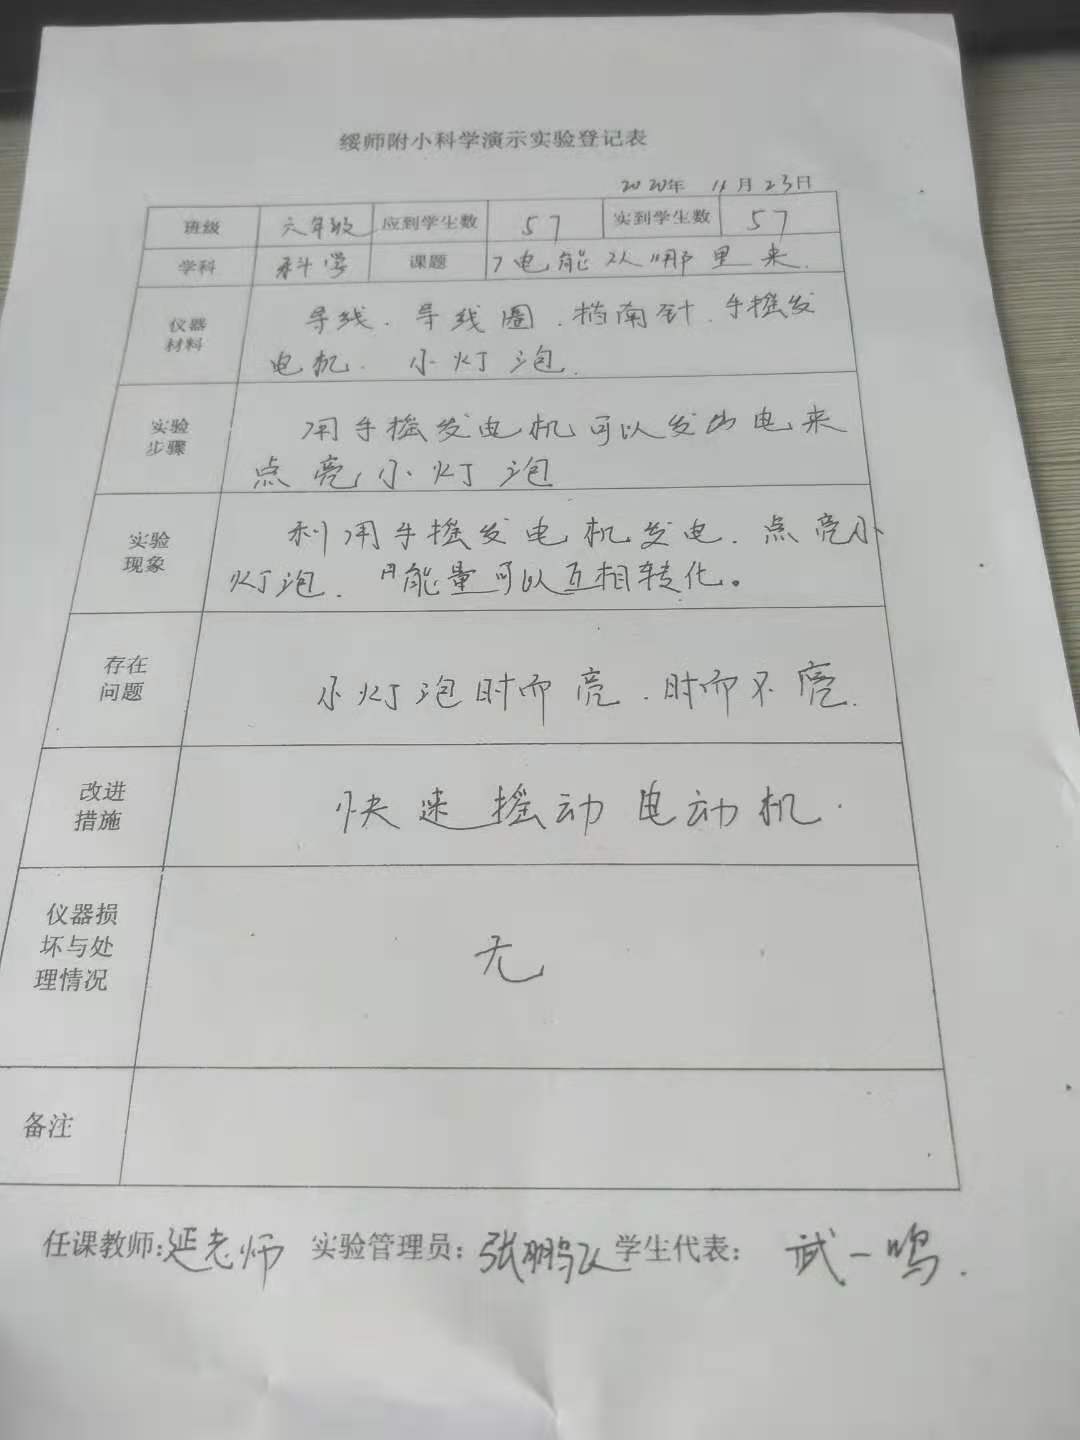 绥师附小科学演示实验登记表
2020年 11月23日
班级 六年级 应到学生数 57 实到学生数 57
学科 科学 课题 7电能从哪里来.
仪器
材料
导线.导线圈.指南针.手摇发
电机. 小灯泡.
实验
步骤
用手摇发电机可以发出电来
点亮小灯泡
实验
现象
利用手摇发电机发电.点亮小
灯泡. 能量可以互相转化。
存在
问题
小灯泡时而亮.时而不亮.
改进
措施
快速摇动电动机.
仪器损
坏与处
理情况
无
备注
任课教师:延老师 实验管理员:张鹏飞 学生代表: 武一鸣.